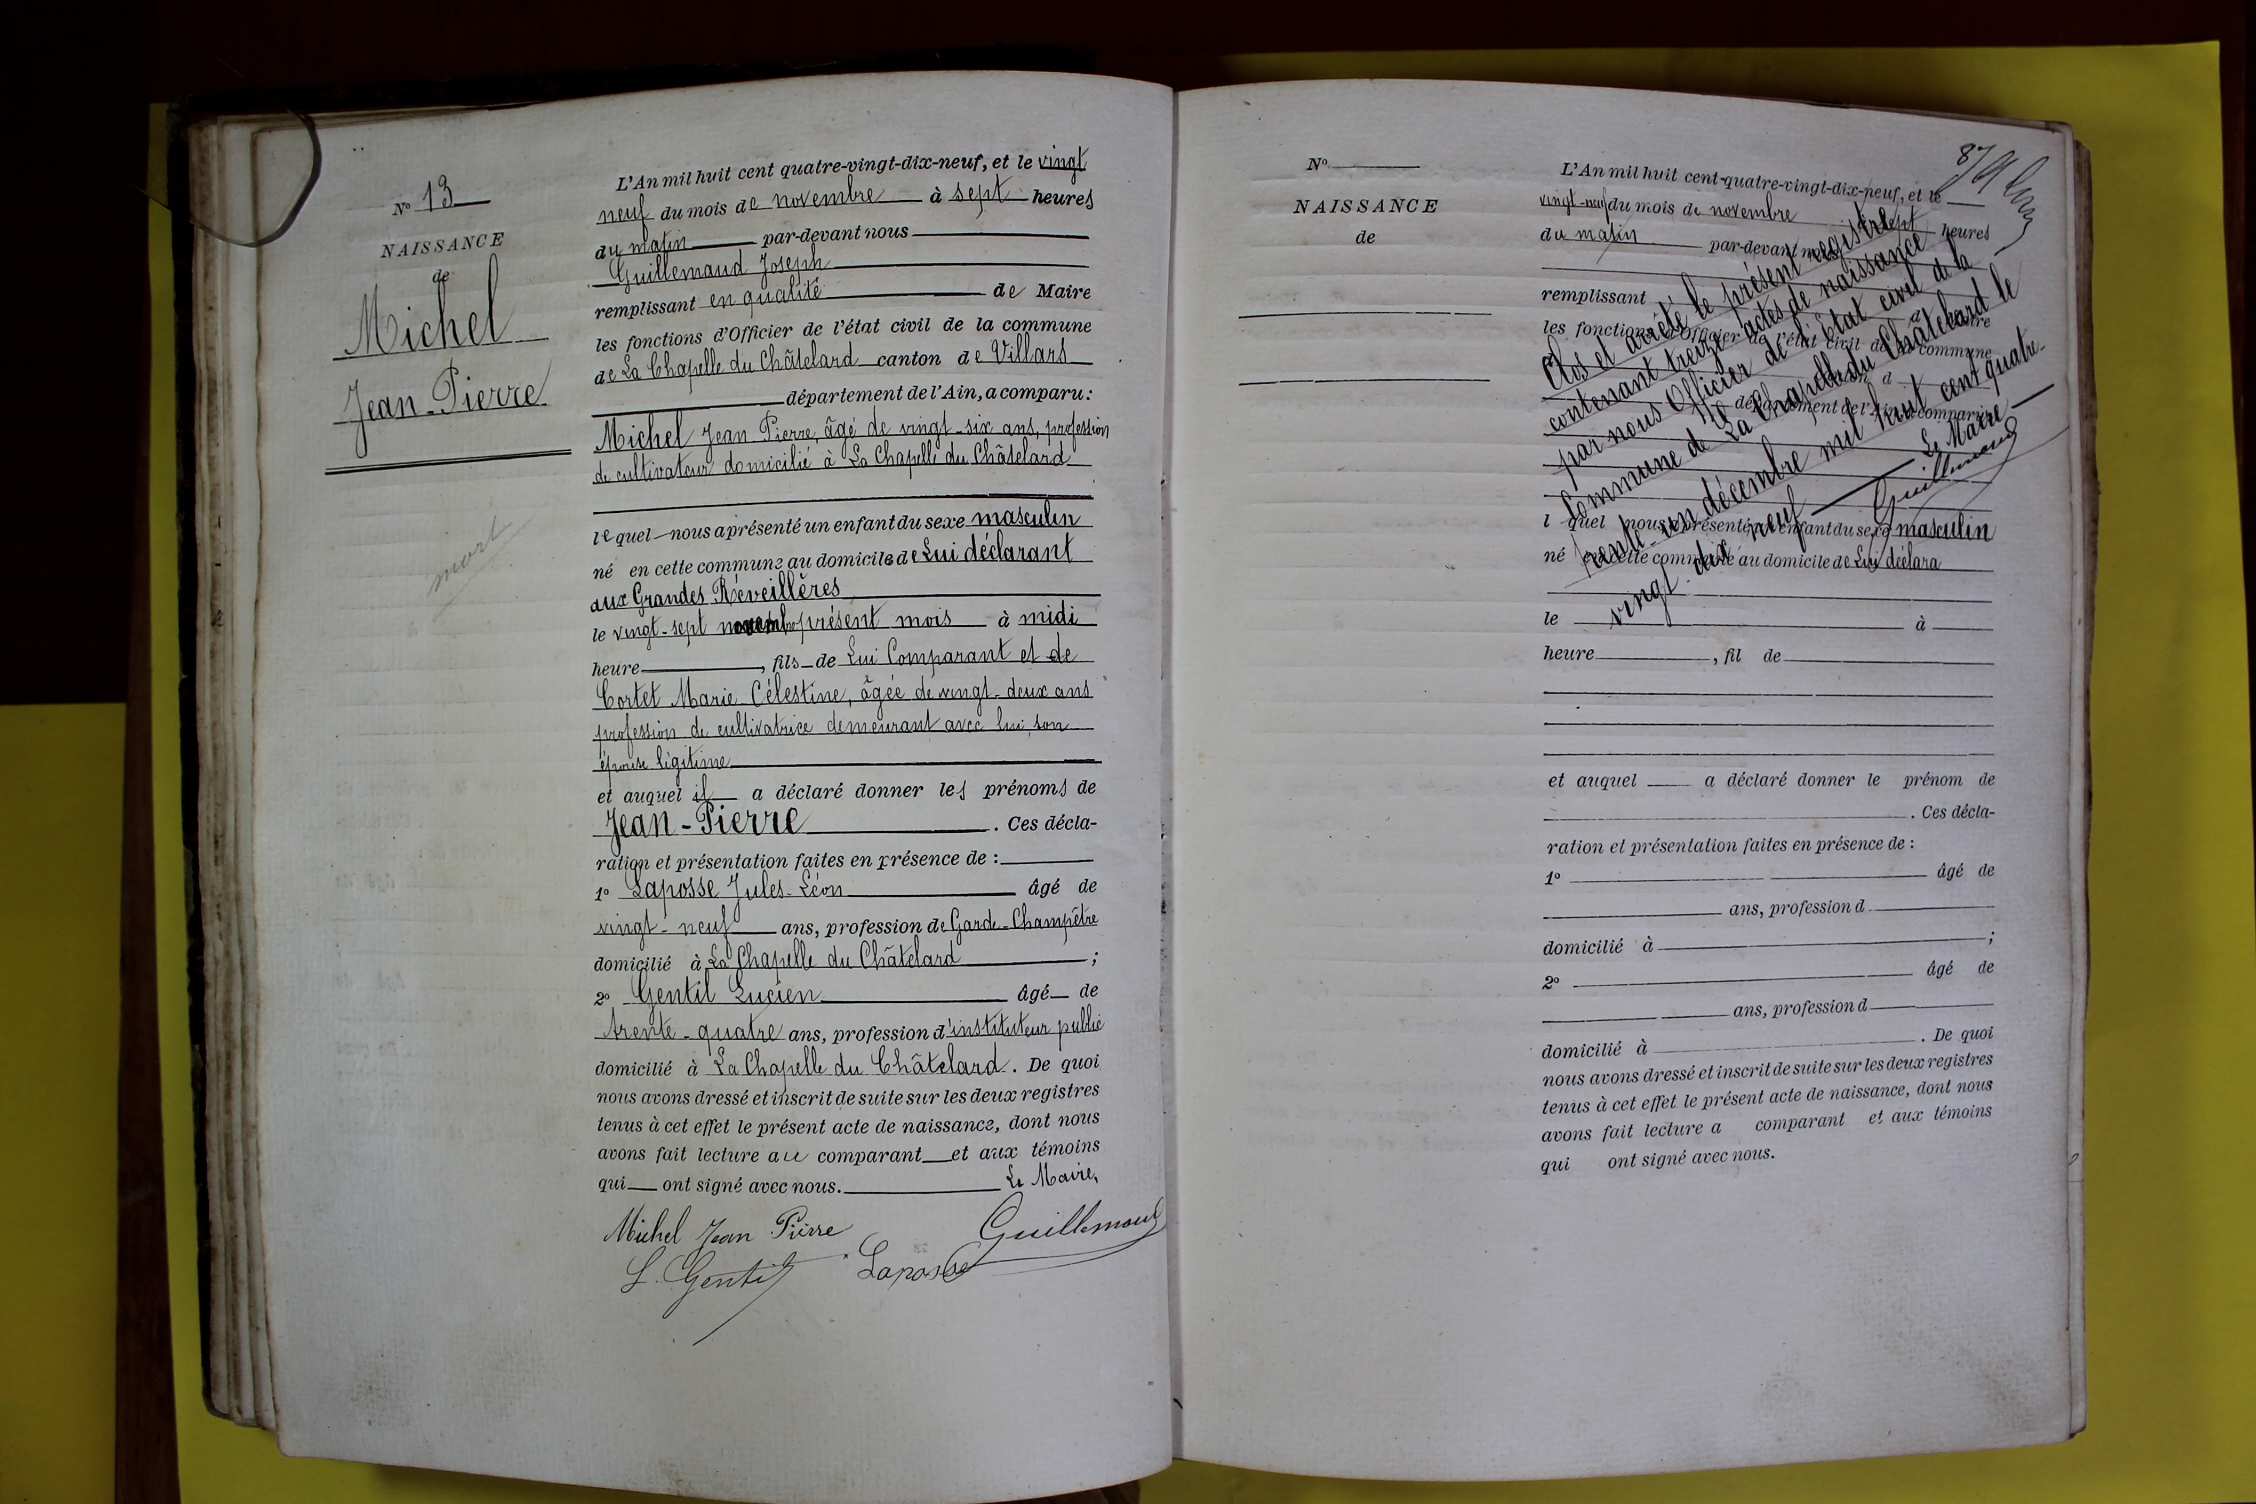 N° 13
NAISSANCE
de
Michel
Jean-Pierre
mort
L'An mil huit cent quatre-vingt-dix-neuf, et le vingt
neuf du mois de novembre à sept heures
du matin par-devant nous
Guillemaud Joseph
remplissant en qualité de Maire
les fonctions d'Officier de l'état civil de la commune
de La Chapelle du Châtelard canton de Villars
département de l'Ain, a comparu :
Michel Jean Pierre, âgé de vingt-six ans, profession
de cultivateur domicilié à La Chapelle du Châtelard
lequel nous a présenté un enfant du sexe masculin
né en cette commune au domicile de Lui déclarant
aux Grandes Réveillères
le vingt-sept novembre présent mois à midi
heure, fils de Lui Comparant et de
Cortet Marie Célestine, âgée de vingt-deux ans
profession de cultivatrice demeurant avec lui, son
épouse légitime
et auquel il a déclaré donner les prénoms de
Jean-Pierre. Ces décla-
ration et présentation faites en présence de :
1° Laposse Jules-Léon âgé de
vingt-neuf ans, profession de Garde-Champêtre
domicilié à La Chapelle du Châtelard ;
2° Gentil Lucien âgé de
trente-quatre ans, profession d'instituteur public
domicilié à La Chapelle du Châtelard. De quoi
nous avons dressé et inscrit de suite sur les deux registres
tenus à cet effet le présent acte de naissance, dont nous
avons fait lecture au comparant et aux témoins
qui ont signé avec nous. Le Maire,
Michel Jean Pierre Guillemaud
L. Gentil Laposse
87
N°
NAISSANCE
de
L'An mil huit cent-quatre-vingt-dix-neuf, et le
vingt-neuf du mois de novembre sept heures
du matin par-devant nous
remplissant de Maire
les fonctions d'Officier de l'état civil de la commune
d canton d
département de l'Ain, a comparu :
Clos et arrêté le présent registre
contenant treize actes de naissance
par nous Officier de l'État civil de la
Commune de La Chapelle du Châtelard le
trente-un décembre mil huit cent quatre-
vingt-dix neuf
Le Maire
Guillemaud
l quel nous a présenté un enfant du sexe masculin
né en cette commune au domicile de Lui déclara
le à
heure, fil de
et auquel a déclaré donner le prénom de
. Ces décla-
ration et présentation faites en présence de :
1° âgé de
ans, profession d
domicilié à ;
2° âgé de
ans, profession d
domicilié à . De quoi
nous avons dressé et inscrit de suite sur les deux registres
tenus à cet effet le présent acte de naissance, dont nous
avons fait lecture a comparant et aux témoins
qui ont signé avec nous.